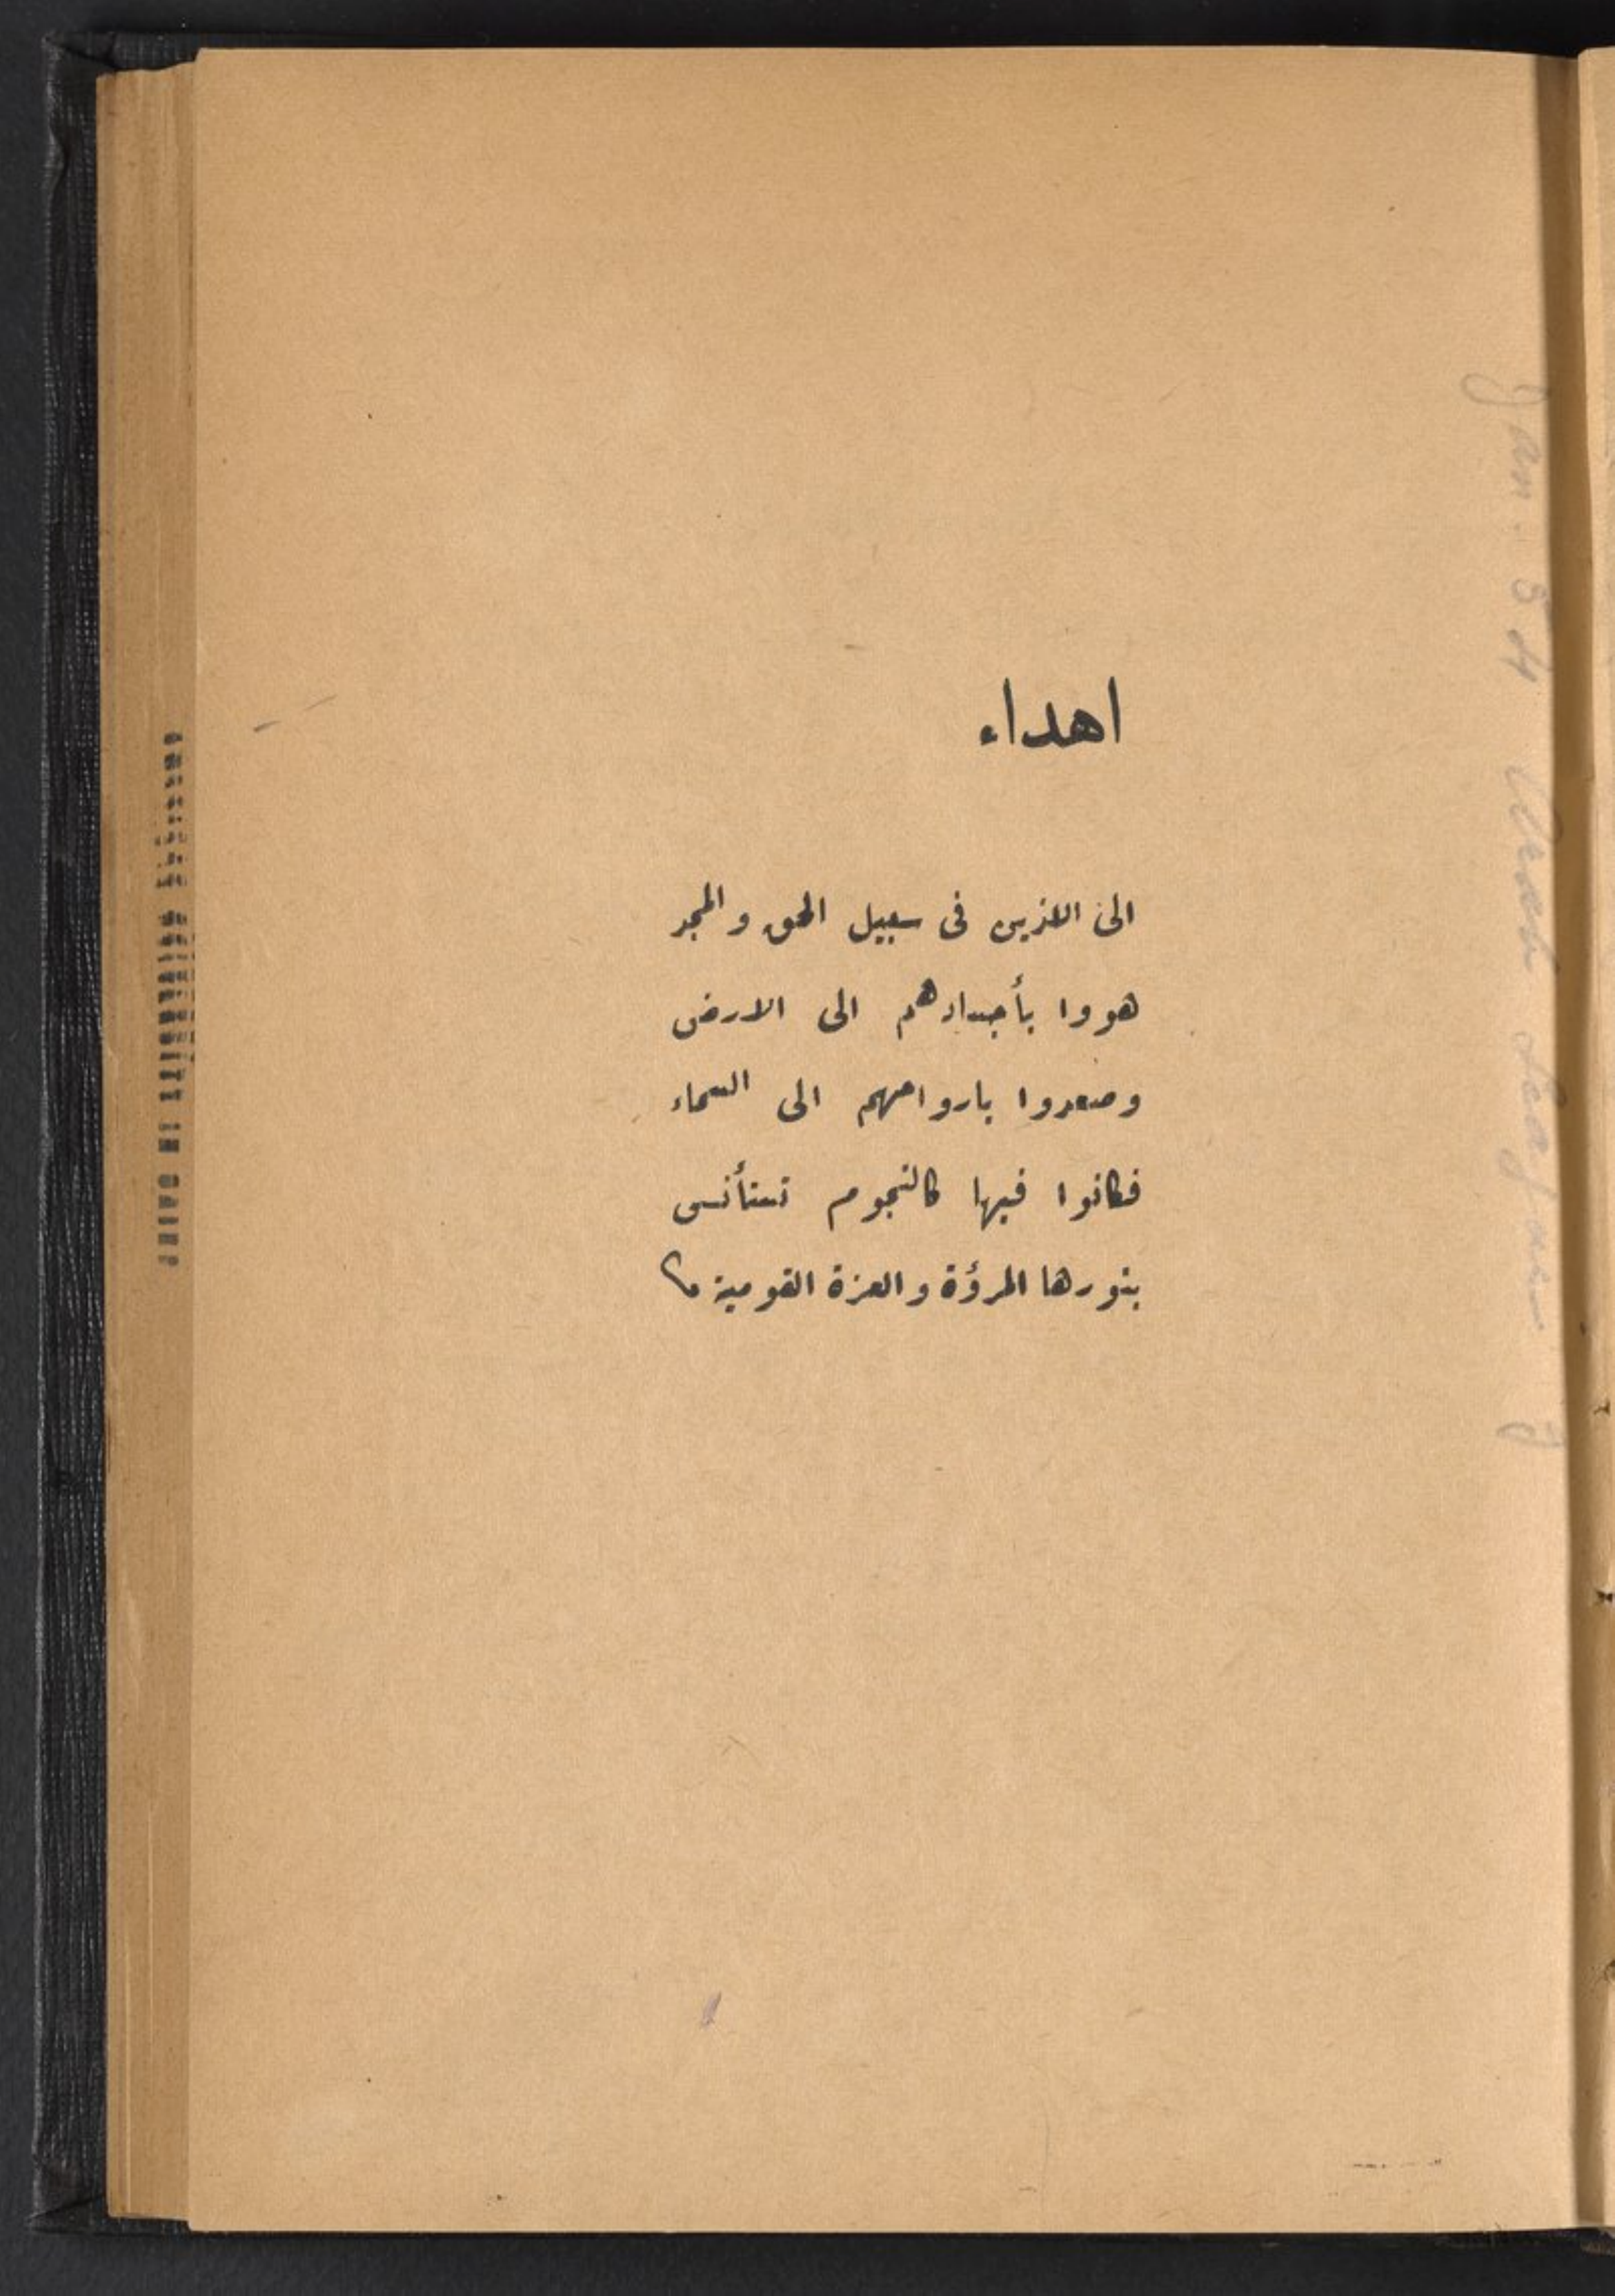 اهداء
الى اللذين فى سبيل الحق و المجد
هووا بأجسادهم الى الارض
وصعدوا بارواحهم الى السماء
فكانوا فيها كالنجوم تستأنس
بنورها المرؤة و العزة القومية
AMERICAN UNIVERSITY IN CAIRO